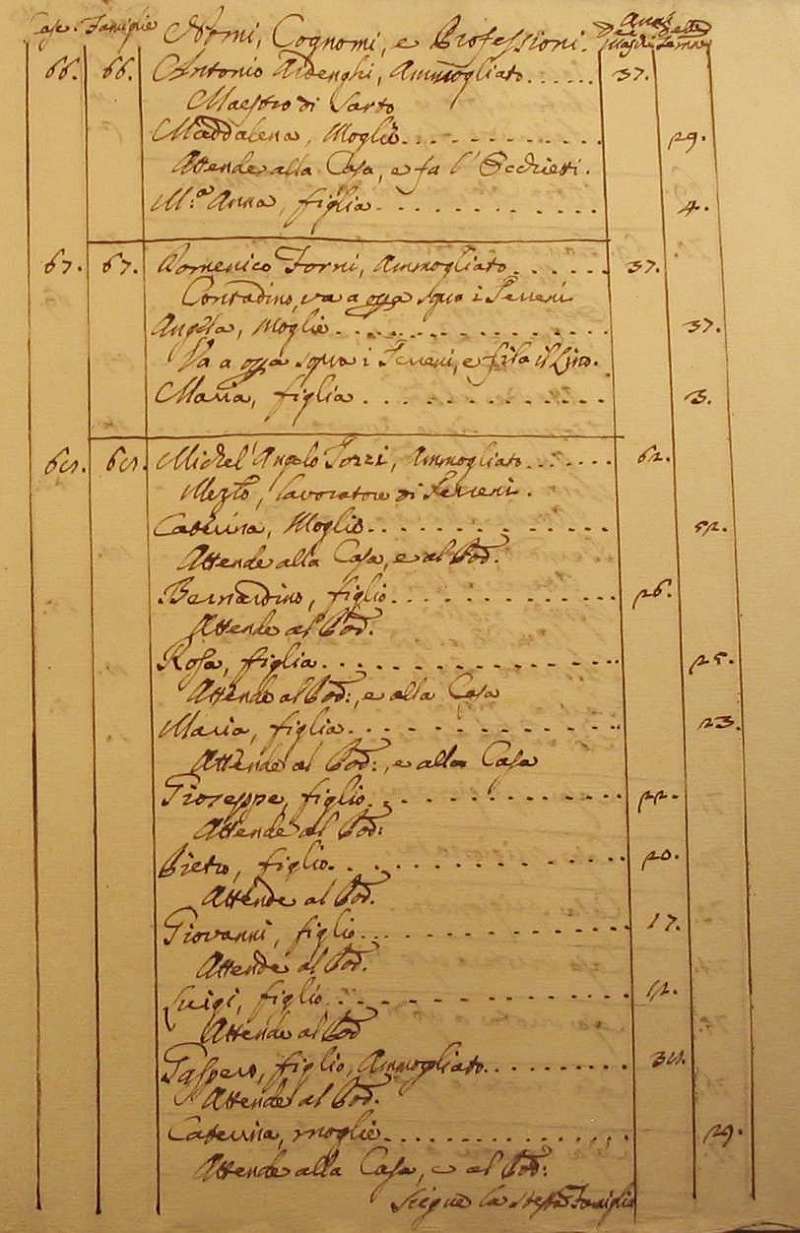 Case Famiglie Nomi, Cognomi, e Professioni. Anni delle Maschi Femine
66. 66. Antonio Ardenghi, Ammogliato...... 37.
Maestro di Sarto
Maddalena, Moglie............ 29.
Attende alla Casa, e fa l'
M:a Anna, figlia............ 4.
67. 67. Domenico Forni, Ammogliato...... 37.
Contadino, va a opra sopra i Terreni
Angela, Moglie.............. 37.
Va a opra sopra i Terreni, e fila il Lino.
Maria, figlia............. 3.
68. 68. Michel'Angelo Tozzi, Ammogliato...... 62.
Mezzo, lavoratore di Terreni.
Catterina, Moglie............ 52.
Attende alla Casa, e al Pod.
Bernardino, figlio............ 26.
Attende al Pod.
Rosa, figlia............... 25.
Attende al Pod:, e alla Casa
Maria, figlia.............. 23.
Attende al Pod:, e alla Casa
Gioseppe, figlio............ 22.
Attende al Pod:
Pietro, figlio............. 20.
Attende al Pod.
Giovanni, figlio............ 17.
Attende al Pod.
Luigi, figlio.............. 12.
Attende al Pod
Gaspero, figlio, Ammogliato......... 38.
Attende al Pod.
Catterina, moglie............ 29.
Attende alla Casa, e al Pod:
Siegue la stessa Famiglia